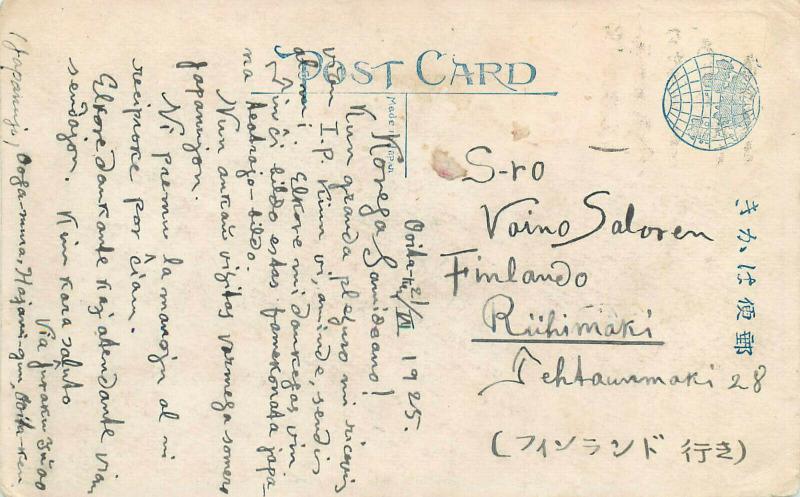 POST CARD
Made in Japan
きかは便郵
S-ro
Vaino Saloren
Finlando
Riihimäki
Tehtaanmaki 28
(フィンランド 行き)
Ooita 21/VII 1925.
Korega Samideano!
Kun granda plezuro mi ricevis
vian I.P. kiun vi, aminde, sendis
al mi. Elkore mi dankegas vin
Tiu ĉi bildo estas famekonata japa-
na teatrajo-bildo.
Nun ankaŭ vizitas varmega somero
Japanujon.
Ni premu la manojn al ni
reciproke por ĉiam.
Elkore dankante kaj atendante vian
sendajon. Kun kara saluto
Via
(Japanujo, Ooga-mura, Hajami-gun, Ooita-ken